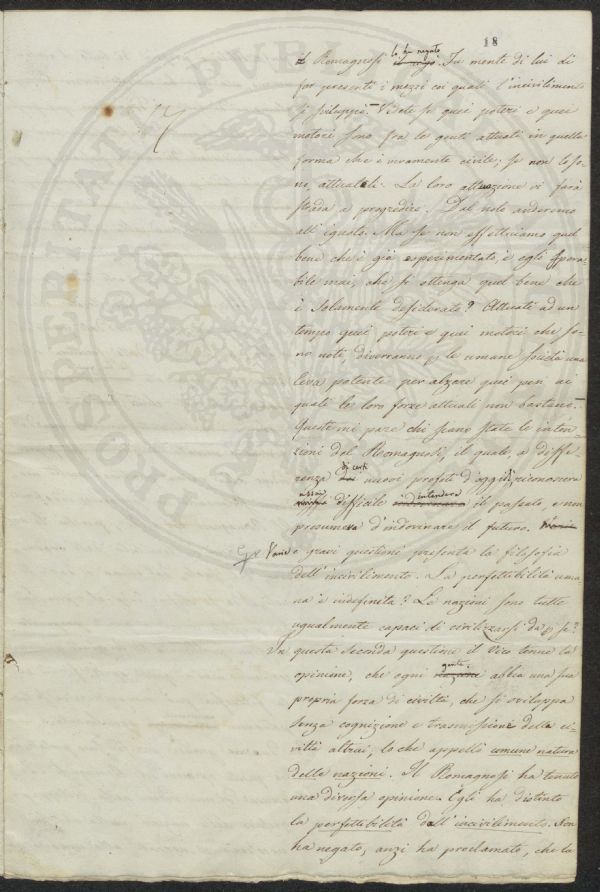 18
17
il Romagnosi lo ha negato. In mente di lui di
far presenti i mezzi coi quali l'incivilimento
si sviluppò. Vedete se quei poteri e quei
motori sono fra le genti attuati in quella
forma che è veramente civile; se non lo so-
no, attuateli. La loro attuazione vi farà
strada a progredire. Dal noto anderemo
all'ignoto. Ma se non effettuiamo quel
bene che è già esperimentato, è egli spera-
bile mai, che si ottenga quel bene che
è solamente desiderato? Attuati ad un
tempo quei poteri e quei motori che so-
no noti, diverranno per le umane società una
leva potente per alzare quei pesi ai
quali le loro forze attuali non bastano.
Queste mi pare che siano state le inten-
zioni del Romagnosi, il quale, a diffe-
renza di certi nuovi profeti d'oggidì, riconosceva
assai difficile intendere il passato, e non
presumeva d'indovinare il futuro.
Varie e gravi questioni presenta la filosofia
dell'incivilimento. La perfettibilità uma-
na è indefinita? Le nazioni sono tutte
ugualmente capaci di civilizzarsi da per se?
In questa seconda questione il Vico tenne la
opinione, che ogni gente abbia una sua
propria forza di civiltà, che si sviluppa
senza cognizione e trasmissione della ci-
viltà altrui, lo che appellò comune natura
delle nazioni. Il Romagnosi ha tenuto
una diversa opinione. Egli ha distinto
la perfettibilità dall'incivilimento. Non
ha negato, anzi ha proclamato, che la